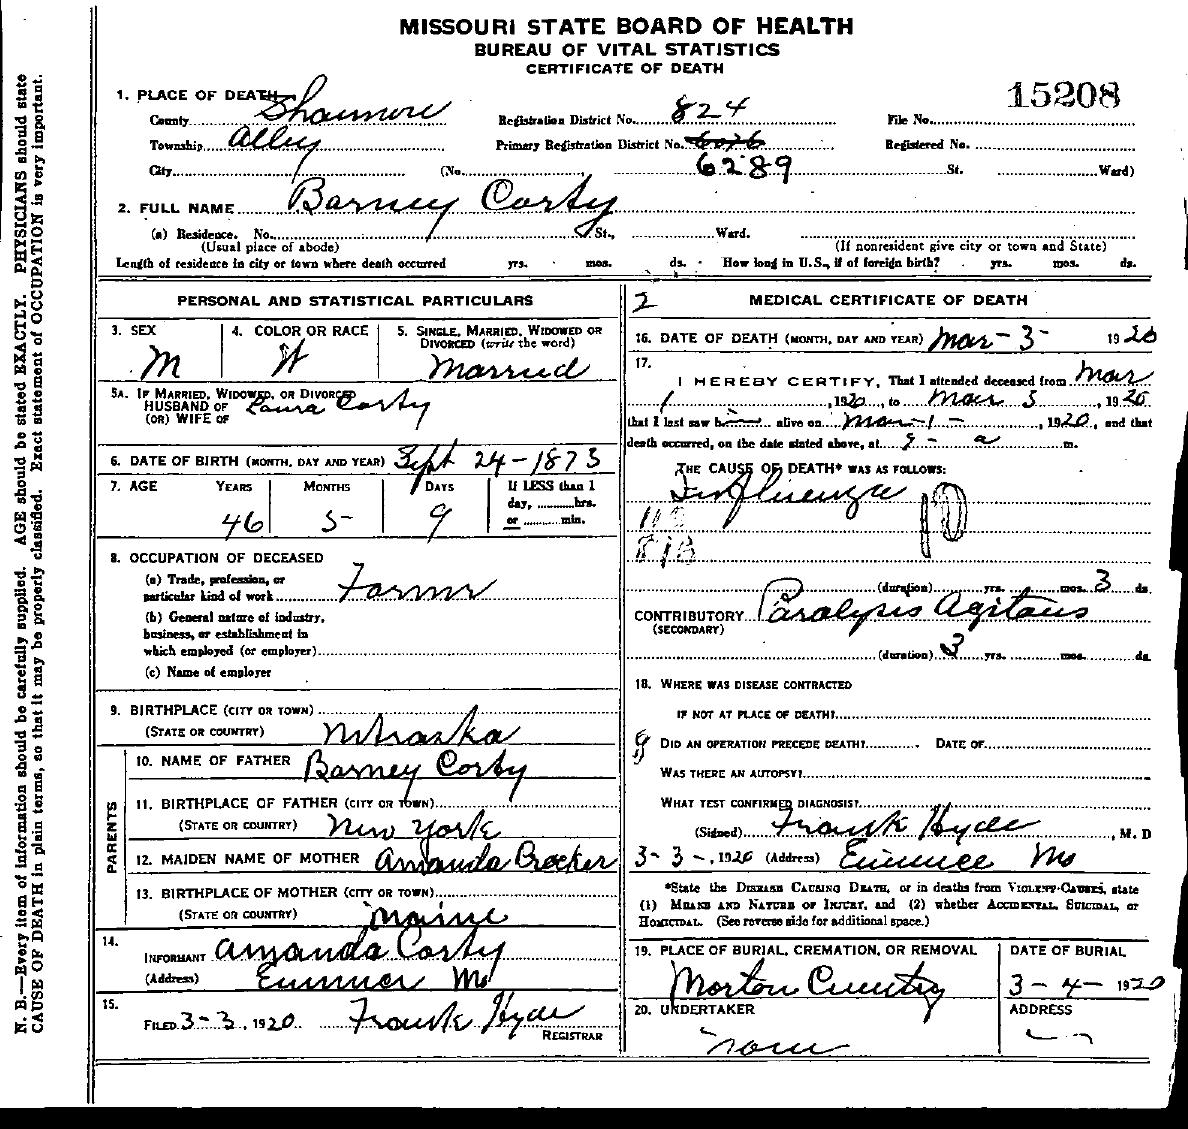 MISSOURI STATE BOARD OF HEALTH
BUREAU OF VITAL STATISTICS
CERTIFICATE OF DEATH
15208
1. PLACE OF DEATH
County Shannon Registration District No. 824 File No.
Township Alley Primary Registration District No. 6076 Registered No.
6289
City (No. St. Ward)
2. FULL NAME Barney Corty
(a) Residence. No. St., Ward.
(Usual place of abode) (If nonresident give city or town and State)
Length of residence in city or town where death occurred yrs. mos. ds. How long in U.S., if of foreign birth? yrs. mos. ds.
PERSONAL AND STATISTICAL PARTICULARS
3. SEX 4. COLOR OR RACE 5. SINGLE, MARRIED, WIDOWED OR
DIVORCED (write the word)
M W Married
5A. IF MARRIED, WIDOWED, OR DIVORCED
HUSBAND OF Laura Corty
(OR) WIFE OF
6. DATE OF BIRTH (MONTH, DAY AND YEAR) Sept 24-1873
7. AGE YEARS MONTHS DAYS If LESS than 1
day, hrs.
or min.
46 5 9
8. OCCUPATION OF DECEASED
(a) Trade, profession, or
particular kind of work Farmr
(b) General nature of industry,
business, or establishment in
which employed (or employer)
(c) Name of employer
9. BIRTHPLACE (CITY OR TOWN)
(STATE OR COUNTRY) Nebraska
PARENTS
10. NAME OF FATHER Barney Corty
11. BIRTHPLACE OF FATHER (CITY OR TOWN)
(STATE OR COUNTRY) New York
12. MAIDEN NAME OF MOTHER Amanda Crocker
13. BIRTHPLACE OF MOTHER (CITY OR TOWN)
(STATE OR COUNTRY) Maine
14.
INFORMANT Amanda Corty
(Address) Eminence Mo
15.
FILED 3-3, 1920 Frank Hyde
REGISTRAR
2 MEDICAL CERTIFICATE OF DEATH
16. DATE OF DEATH (MONTH, DAY AND YEAR) Mar-3- 1920
17.
I HEREBY CERTIFY, That I attended deceased from Mar
1, 1920, to Mar 3, 1920
that I last saw him alive on Mar-1-, 1920, and that
death occurred, on the date stated above, at 9- a m.
THE CAUSE OF DEATH* WAS AS FOLLOWS:
Influenza 10
(duration) yrs. mos. 3 ds.
CONTRIBUTORY Paralysis Agitans
(SECONDARY)
(duration) 3 yrs. mos. ds.
18. WHERE WAS DISEASE CONTRACTED
IF NOT AT PLACE OF DEATH?
DID AN OPERATION PRECEDE DEATH? DATE OF
WAS THERE AN AUTOPSY?
WHAT TEST CONFIRMED DIAGNOSIS?
(Signed) Frank Hyde, M. D
3-3-, 1920 (Address) Eminence Mo
*State the DISEASE CAUSING DEATH, or in deaths from VIOLENT CAUSES, state
(1) MEANS AND NATURE OF INJURY, and (2) whether ACCIDENTAL, SUICIDAL, or
HOMICIDAL. (See reverse side for additional space.)
19. PLACE OF BURIAL, CREMATION, OR REMOVAL DATE OF BURIAL
Morton 3-4- 1920
20. UNDERTAKER ADDRESS
None
N. B.—Every item of information should be carefully supplied. AGE should be stated EXACTLY. PHYSICIANS should state
CAUSE OF DEATH in plain terms, so that it may be properly classified. Exact statement of OCCUPATION is very important.